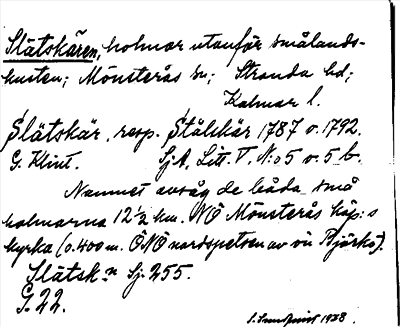 Slätskären, holmar utanför smålands-
kusten; Mönsterås sn; Stranda hd;
Kalmar l.
Slätskär, resp. Stålskär 1787 o. 1792.
G. Klint. Sj.A. Litt. V, N:o 5 o. 5 b.
Namnet avsåg de båda små
holmarna 12½ km. NÖ Mönsterås köp:s
kyrka (0.400 m. ÖNÖ nordspetsen av ön Björkö).
Slätsk:n Sj. 255.
G. 22.
S. Sundquist 1928.